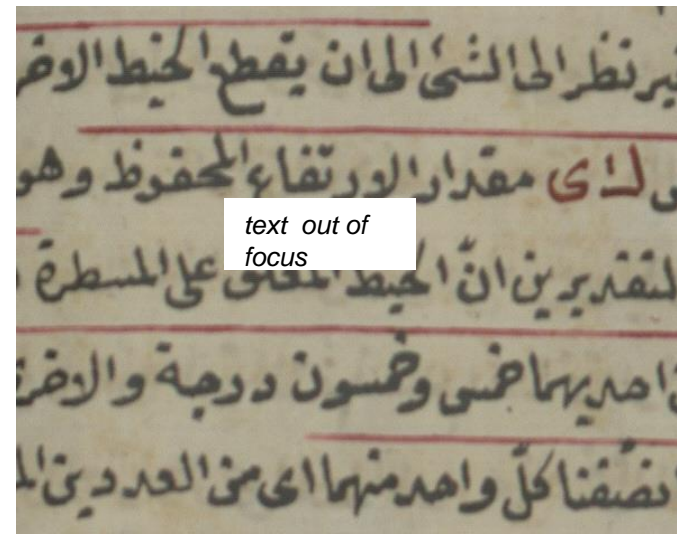 نظر الى الشئ الى ان يقطع الخيط
مقدار الارتفاع المحفوظ وهو
text out of
focus
التقديرين انّ الخيط على المسطرة
احديهما خمس وخمسون درجة والاخرى
نصّفنا كلّ واحد منهما اى من العددين